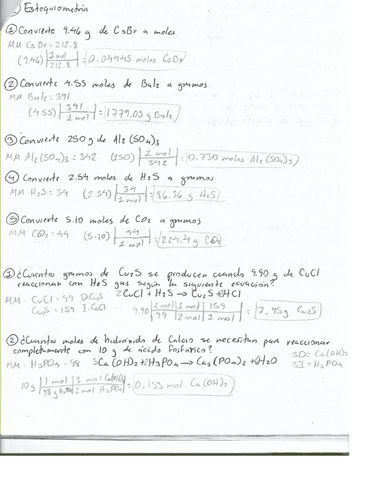 Estequiometria
① Convierte 9.46 g de CsBr a moles
MM CsBr = 212.8
(9.46) | 1 mol / 212.8 | = 0.04445 moles CsBr
② Convierte 4.55 moles de BaI2 a gramos
MM BaI2 = 391
(4.55) | 391 / 1 mol | = 1779.05 g BaI2
③ Convierte 250 g de Al2(SO4)3
MM Al2(SO4)3 = 342 (250) | 1 mol / 342 | = 0.730 moles Al2(SO4)3
④ Convierte 2.54 moles de H2S a gramos
MM H2S = 34 (2.54) | 34 / 1 mol | = 86.36 g H2S
⑤ Convierte 5.10 moles de CO2 a gramos
MM CO2 = 44 (5.10) | 44 / 1 mol | = 224.4 g CO2
① ¿Cuantos gramos de Cu2S se producen cuando 9.90 g de CuCl
reaccionar con H2S gas según la siguiente ecuación?
MM - CuCl = 99 2CuCl + H2S → Cu2S + 2HCl
Cu2S = 159 9.90 | 1 mol / 99 | 1 mol / 2 mol | 159 / 1 mol | = 7.95 g Cu2S
② ¿Cuantos moles de hidroxido de Calcio se necesitan para reaccionar
completamente con 10 g de ácido fosforico?
SD = Ca(OH)2
MM - H3PO4 - 98 3Ca(OH)2 + 2H3PO4 → Ca3(PO4)2 + 6H2O
SI = H3PO4
10 g | 1 mol / 98 g | 3 mol Ca(OH)2 / 2 mol H3PO4 | = 0.153 mol Ca(OH)2